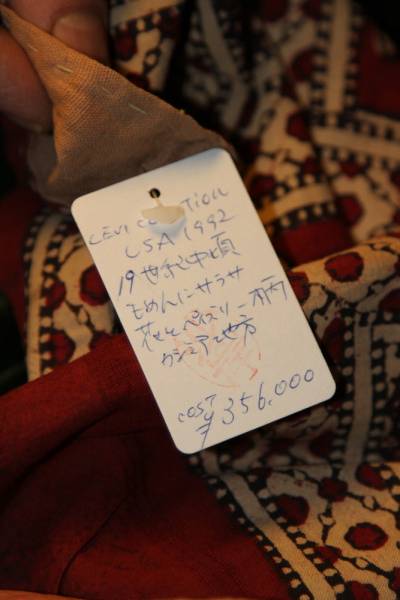 CEVI C TION
USA 1992
19世紀中頃
もめんにサラサ
花とペイズリー柄
地方
COST ¥356.000